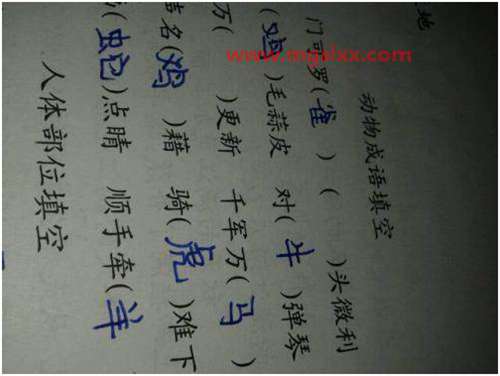 地
动物成语填空
门可罗(雀) ( )头微利
(鸡)毛蒜皮 对(牛)弹琴
万( )更新 千军万(马)
名(鸡)藉 骑(虎)难下
()点睛 顺手牵(羊)
人体部位填空
www.mgslxx.com